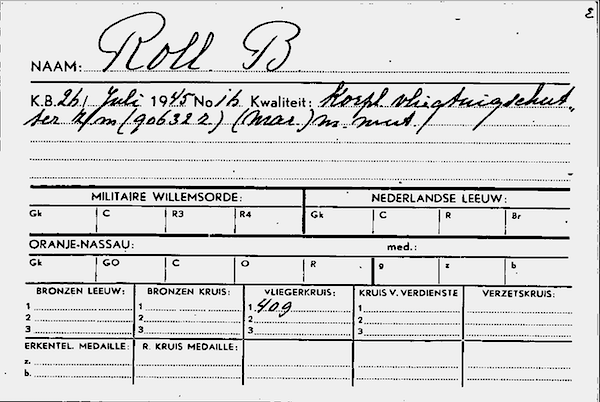 NAAM: Roll B
K.B. 26 Juli 1945 No 16 Kwaliteit: Korpl. vliegtuigschut„
ter z/m (90632 z) (mar.)
MILITAIRE WILLEMSORDE: NEDERLANDSE LEEUW:
Gk C R3 R4 Gk C R Br
ORANJE-NASSAU: med.:
Gk GO C O R g z b
BRONZEN LEEUW: BRONZEN KRUIS: VLIEGERKRUIS: KRUIS V. VERDIENSTE VERZETSKRUIS:
1 1 1 409 1
2 2 2 2
3 3 3 3
ERKENTEL. MEDAILLE: R. KRUIS MEDAILLE:
z.
b.